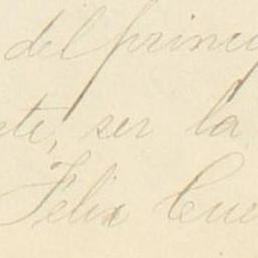 del princi
ete, ser la
Felix Cue